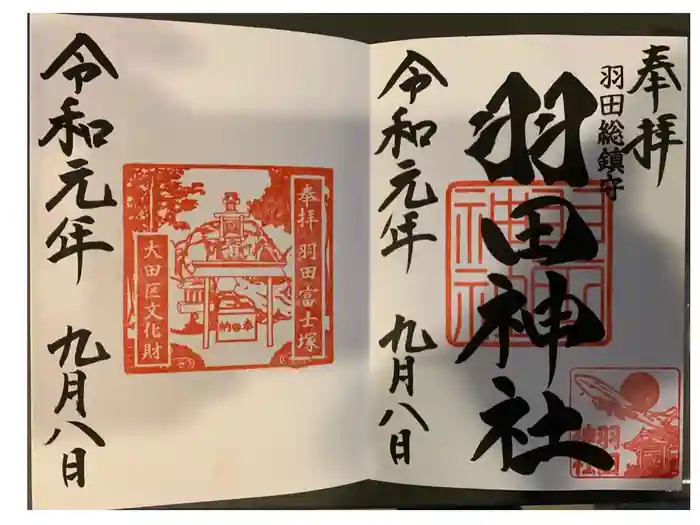 奉拝
羽田総鎮守
羽田神社
令和元年 九月八日
羽田
神社
奉拝 羽田富士塚
奉納
大田区文化財
令和元年 九月八日